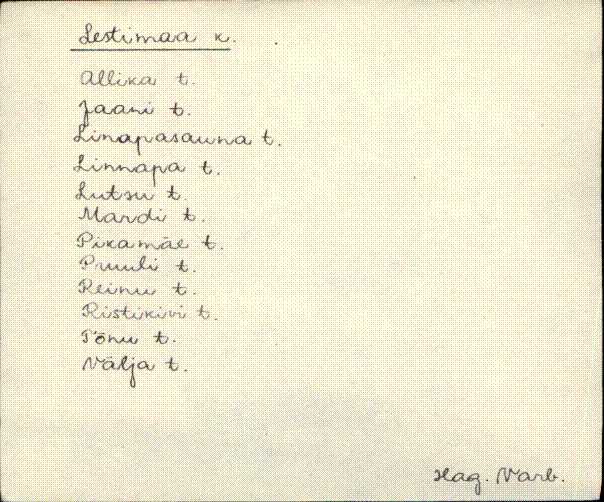 Lestimaa k.
Allika t.
Jaani t.
Linapasauna t.
Linnapa t.
Lutsu t.
Mardi t.
Pikamäe t.
Pruuli t.
Reinu t.
Ristikivi t.
Tõnu t.
Välja t.
Hag. Varb.